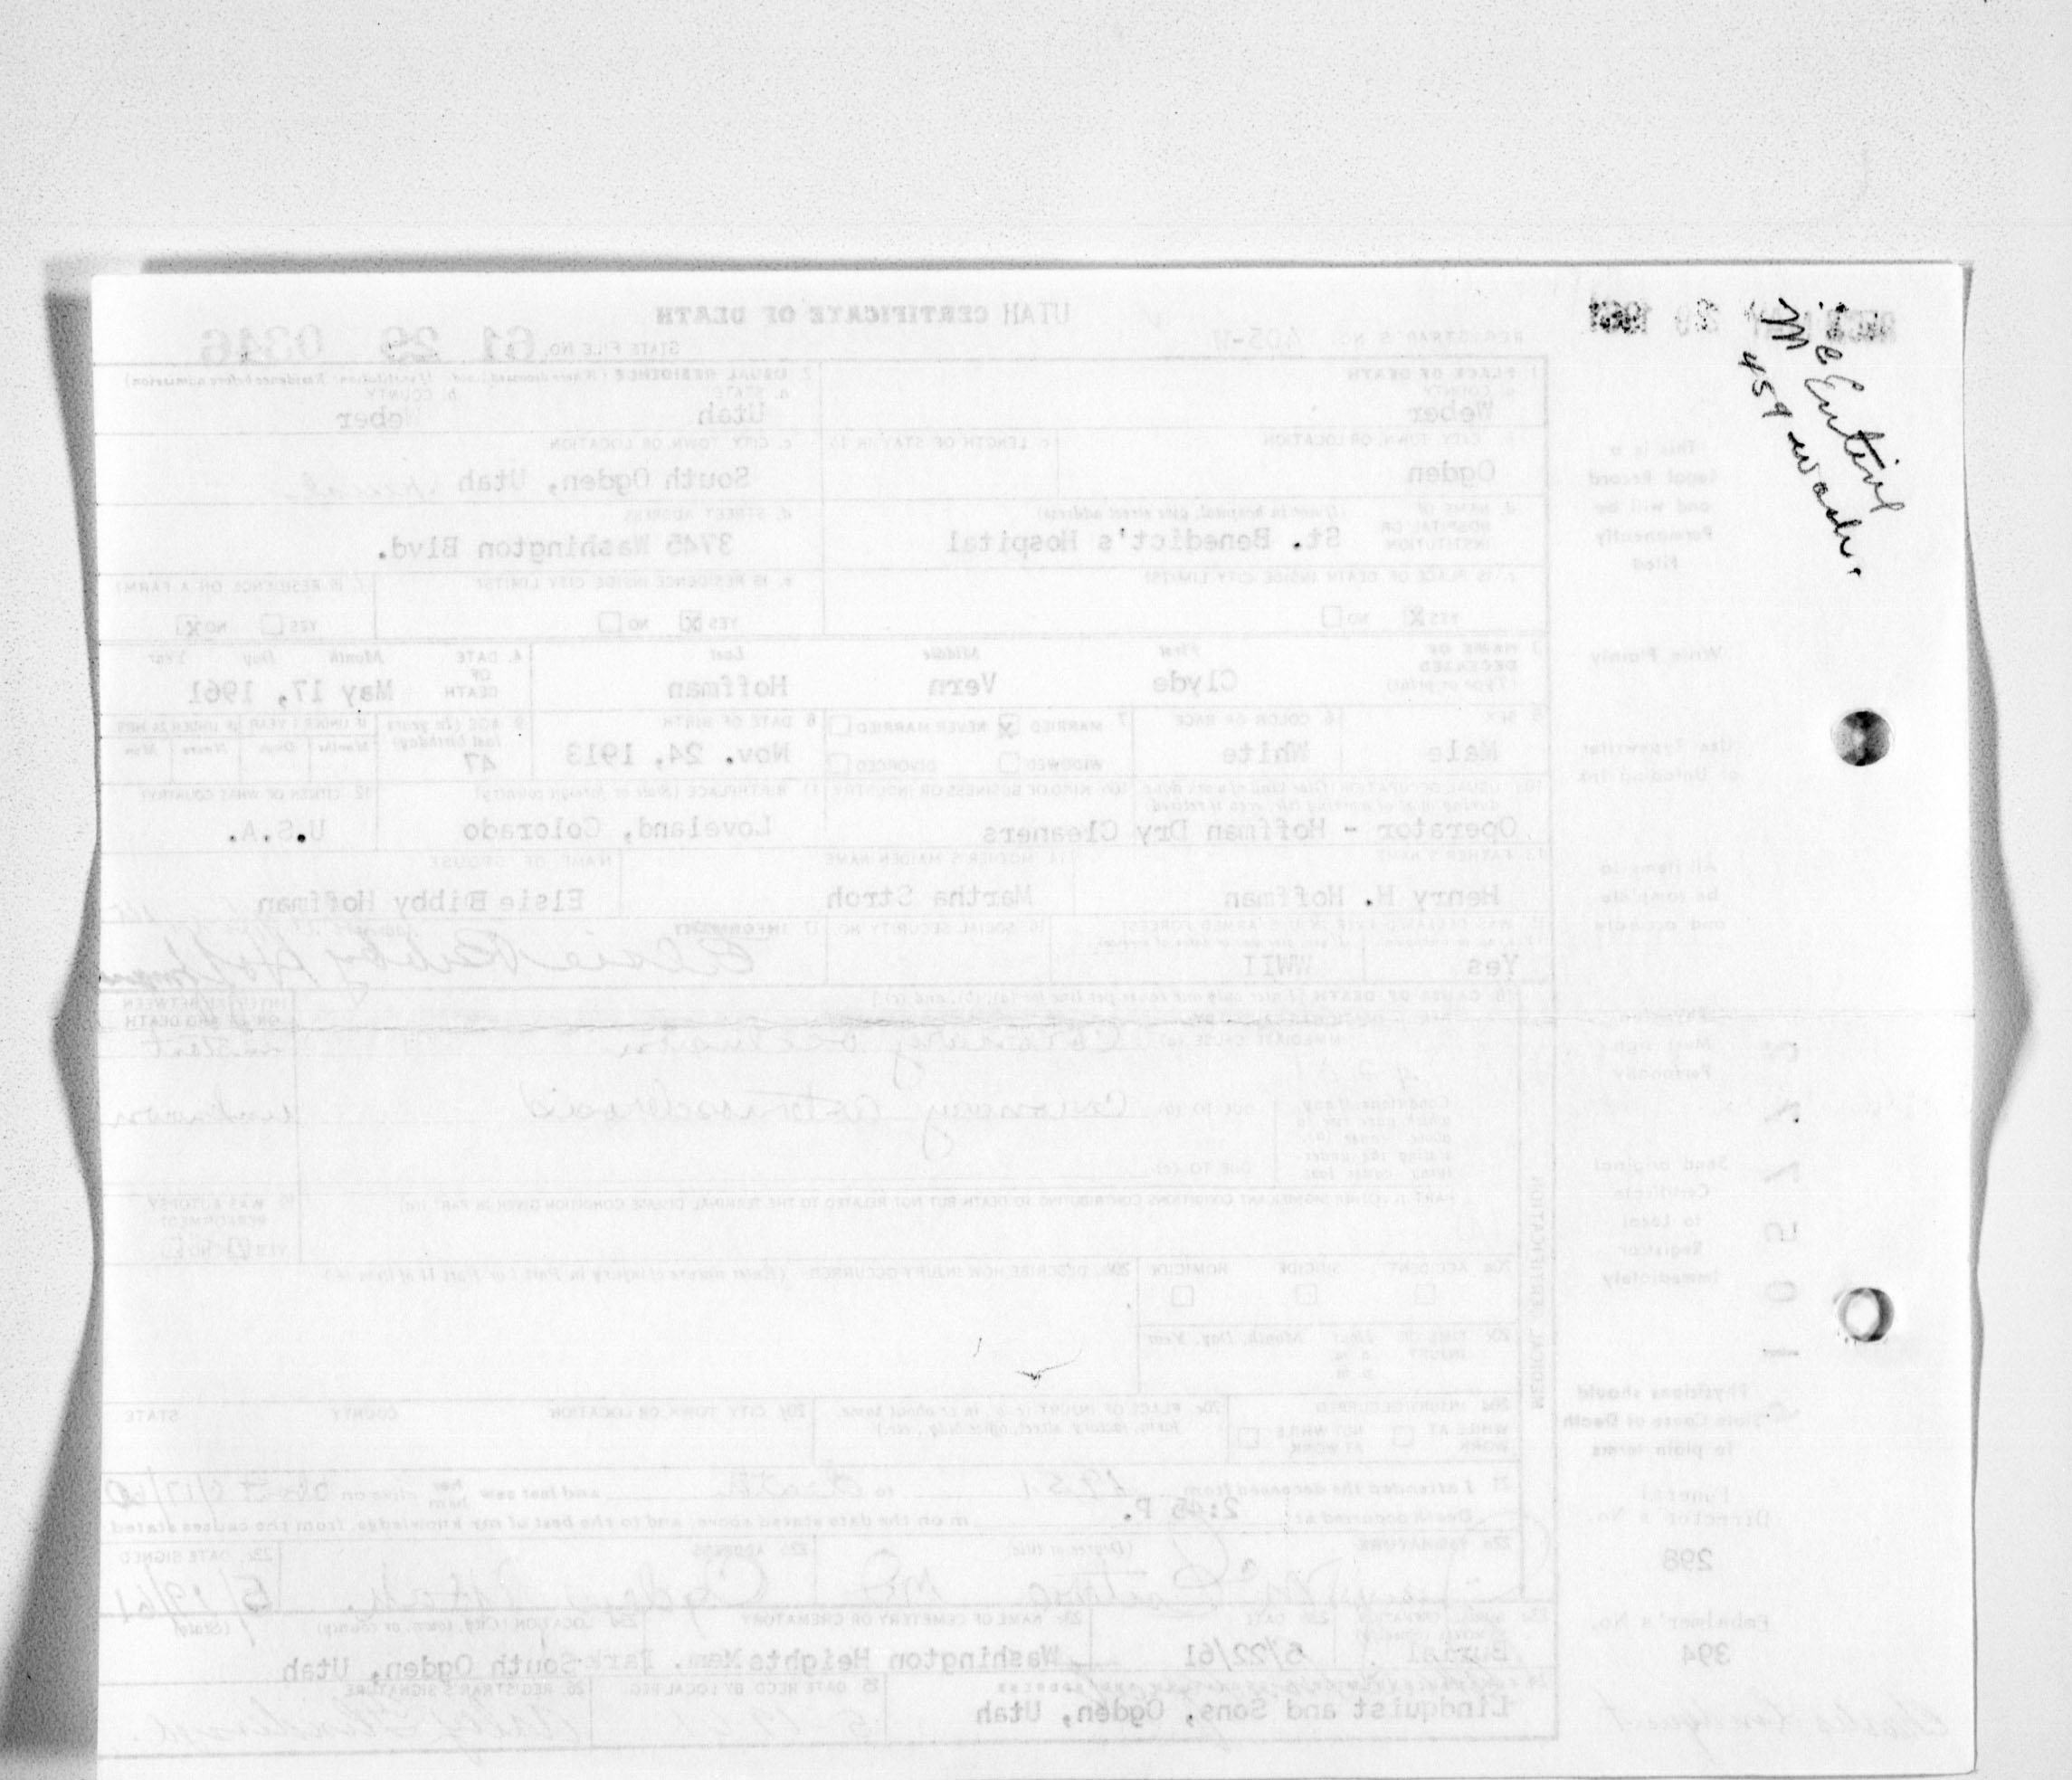 McEntire
459 Wash.
UTAH CERTIFICATE OF DEATH
REGISTRAR'S NO. 405-W
STATE FILE NO. 61 29 0346
1 PLACE OF DEATH
a. COUNTY
Weber
2. USUAL RESIDENCE
a. STATE
Utah
b. COUNTY
eber
CITY, TOWN, OR LOCATION
Ogden
c. LENGTH OF STAY IN 1b
c. CITY, TOWN, OR LOCATION
South Ogden, Utah
d. NAME OF HOSPITAL OR INSTITUTION
(If not in hospital, give street address)
St. Benedict's Hospital
d. STREET ADDRESS
3745 Washington Blvd.
e. IS PLACE OF DEATH INSIDE CITY LIMITS?
YES X NO
e. IS RESIDENCE INSIDE CITY LIMITS?
YES X NO
f. IS RESIDENCE ON A FARM?
YES NO X
3 NAME OF DECEASED
(Type or print)
First Middle Last
Clyde Vern Hoffman
4. DATE OF DEATH
Month Day Year
May 17, 1961
5 SEX
Male
6 COLOR OR RACE
White
7 MARRIED X NEVER MARRIED
WIDOWED DIVORCED
8 DATE OF BIRTH
Nov. 24, 1913
9 AGE (In years last birthday)
47
IF UNDER 1 YEAR
IF UNDER 24 HRS
Months Days Hours Min
10a USUAL OCCUPATION
10b KIND OF BUSINESS OR INDUSTRY
Operator - Hoffman Dry Cleaners
11 BIRTHPLACE (State or foreign country)
Loveland, Colorado
12 CITIZEN OF WHAT COUNTRY?
U.S.A.
13. FATHER'S NAME
Henry H. Hoffman
14. MOTHER'S MAIDEN NAME
Martha Stroh
NAME OF SPOUSE
Elsie Bibby Hoffman
WAS DECEASED EVER IN U.S. ARMED FORCES?
Yes WWII
16. SOCIAL SECURITY NO.
17 INFORMANT
18. CAUSE OF DEATH [Enter only one cause per line for (a), (b), and (c)]
INTERVAL BETWEEN ONSET AND DEATH
IMMEDIATE CAUSE (a)
Coronary occlusion
instant
DUE TO (b)
Coronary
unknown
DUE TO (c)
PART II. OTHER SIGNIFICANT CONDITIONS CONTRIBUTING TO DEATH BUT NOT RELATED TO THE TERMINAL DISEASE CONDITION GIVEN IN PART I(a)
19 WAS AUTOPSY PERFORMED?
YES NO
20a ACCIDENT SUICIDE HOMICIDE
20b. DESCRIBE HOW INJURY OCCURRED (Enter nature of injury in Part I or Part II of item 18)
20c TIME OF INJURY
Hour Month, Day, Year
a.m.
p.m.
20d INJURY OCCURRED
WHILE AT WORK NOT WHILE AT WORK
20e. PLACE OF INJURY (e.g. in or about home, farm, factory, street, office bldg., etc.)
20f CITY, TOWN, OR LOCATION COUNTY STATE
21 I attended the deceased from 1951 to death and last saw her him alive on
Death occurred at 2:45 P. m on the date stated above, and to the best of my knowledge, from the causes stated
22a SIGNATURE (Degree or title)
22b ADDRESS
Ogden Utah
22c. DATE SIGNED
5/19/61
Burial
23b DATE
5/22/61
23c NAME OF CEMETERY OR CREMATORY
Washington Heights Mem. Park
23d LOCATION (City, town, or county) (State)
South Ogden, Utah
Lindquist and Sons, Ogden, Utah
25 DATE RECD BY LOCAL REG.
26. REGISTRAR'S SIGNATURE
MEDICAL CERTIFICATION
This is a
Legal Record
and will be
Permanently
Filed
Write Plainly
Use Typewriter
or Unfading Ink
All items to
be complete
and accurate
Physician
Must sign
Personally
Send original
Certificate
to Local
Registrar
Immediately
Physicians should
State Cause of Death
in plain terms
Funeral
Director's No.
298
Embalmer's No.
394